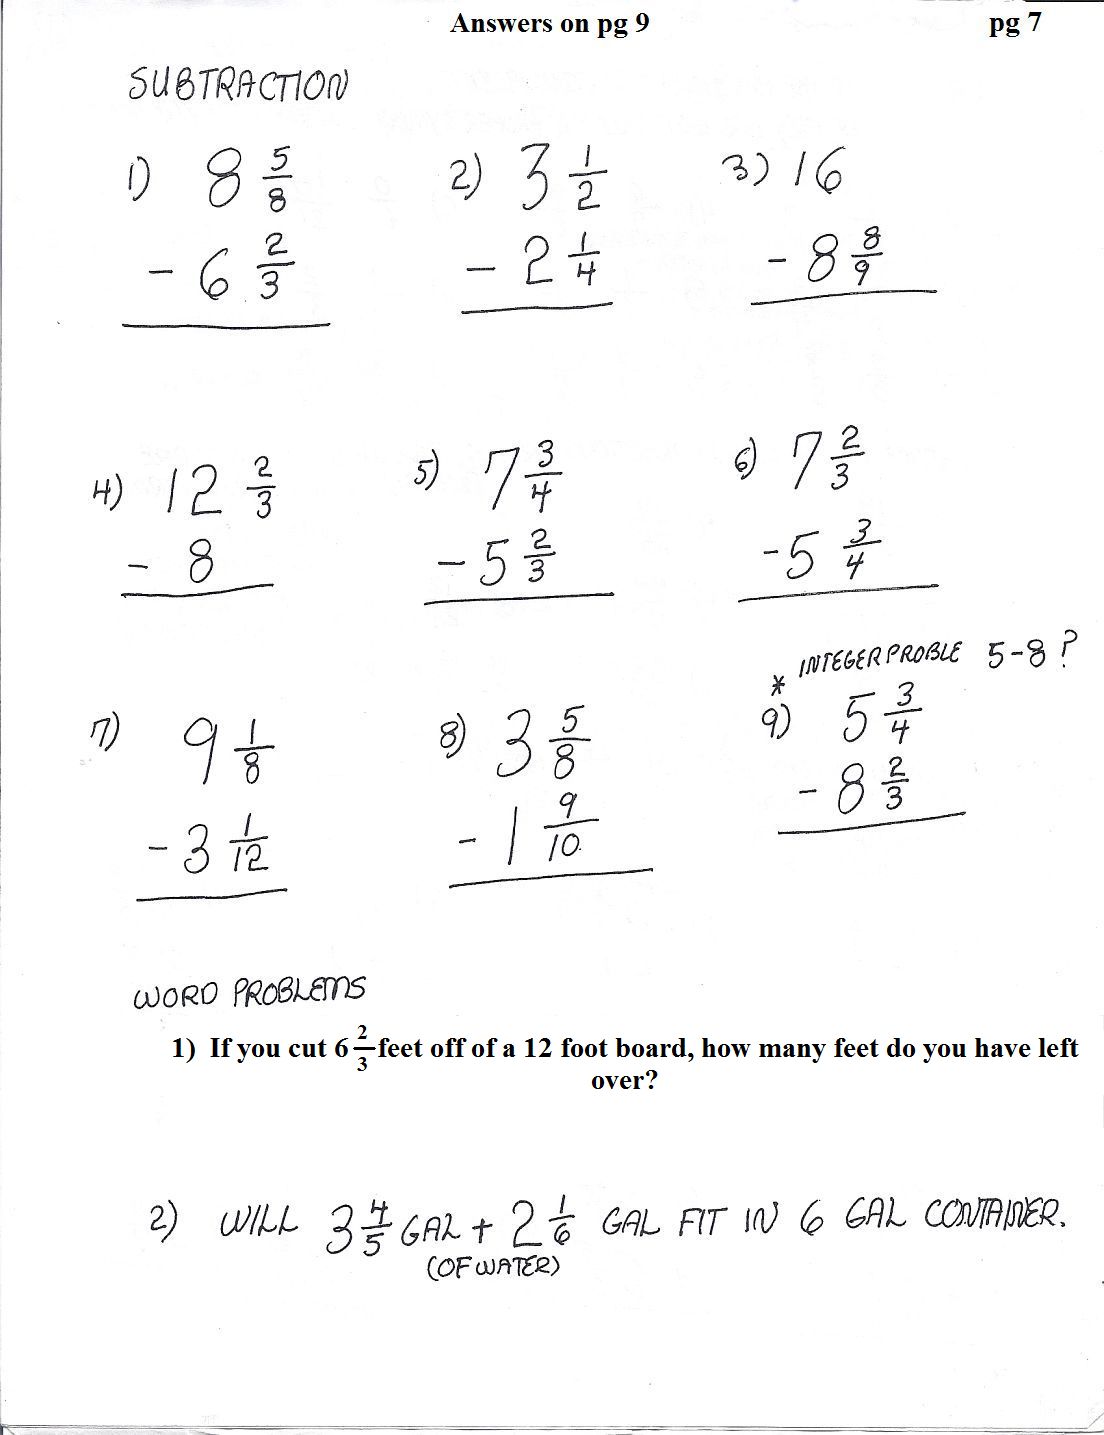 Answers on pg 9 pg 7
SUBTRACTION
1) 8 5/8 2) 3 1/2 3) 16
- 6 2/3 - 2 1/4 - 8 8/9
4) 12 2/3 5) 7 3/4 6) 7 2/3
- 8 - 5 2/3 - 5 3/4
* INTEGER PROBLE 5-8?
7) 9 1/8 8) 3 5/8 9) 5 3/4
- 3 1/12 - 1 9/10 - 8 2/3
WORD PROBLEMS
1) If you cut 6 2/3 feet off of a 12 foot board, how many feet do you have left
over?
2) WILL 3 4/5 GAL + 2 1/6 GAL FIT IN 6 GAL CONTAINER.
(OF WATER)